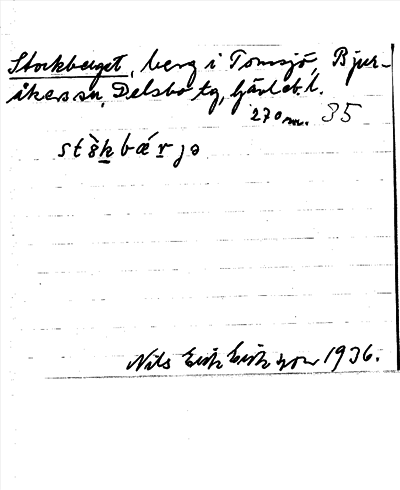 Stockberget, berg i Tomsjö, Bjur-
åkers sn, Delsbo tg, Gävleb. l.
270 m. 35
stòkbǽrjə
Nils Erik Eriksson 1936.